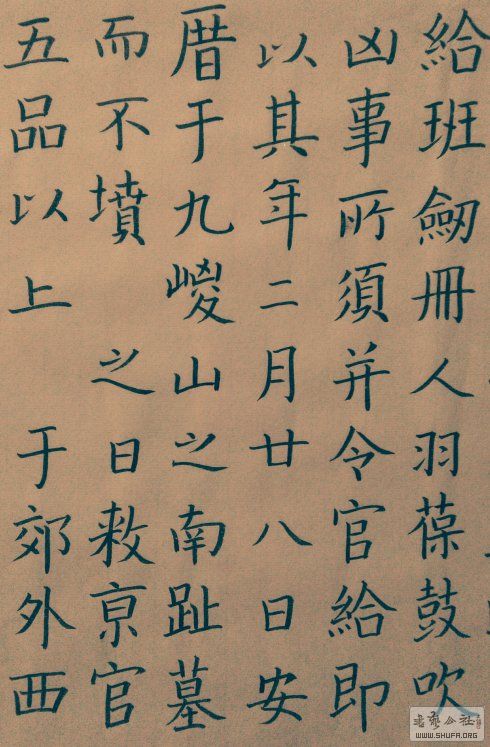 給班劒冊人羽葆鼓吹
凶事所須并令官給即
以其年二月廿八日安
厝于九嵕山之南趾墓
而不墳 之日敕亰官
五品以上 于郊外西
书艺公社
WWW.SHUFA.ORG